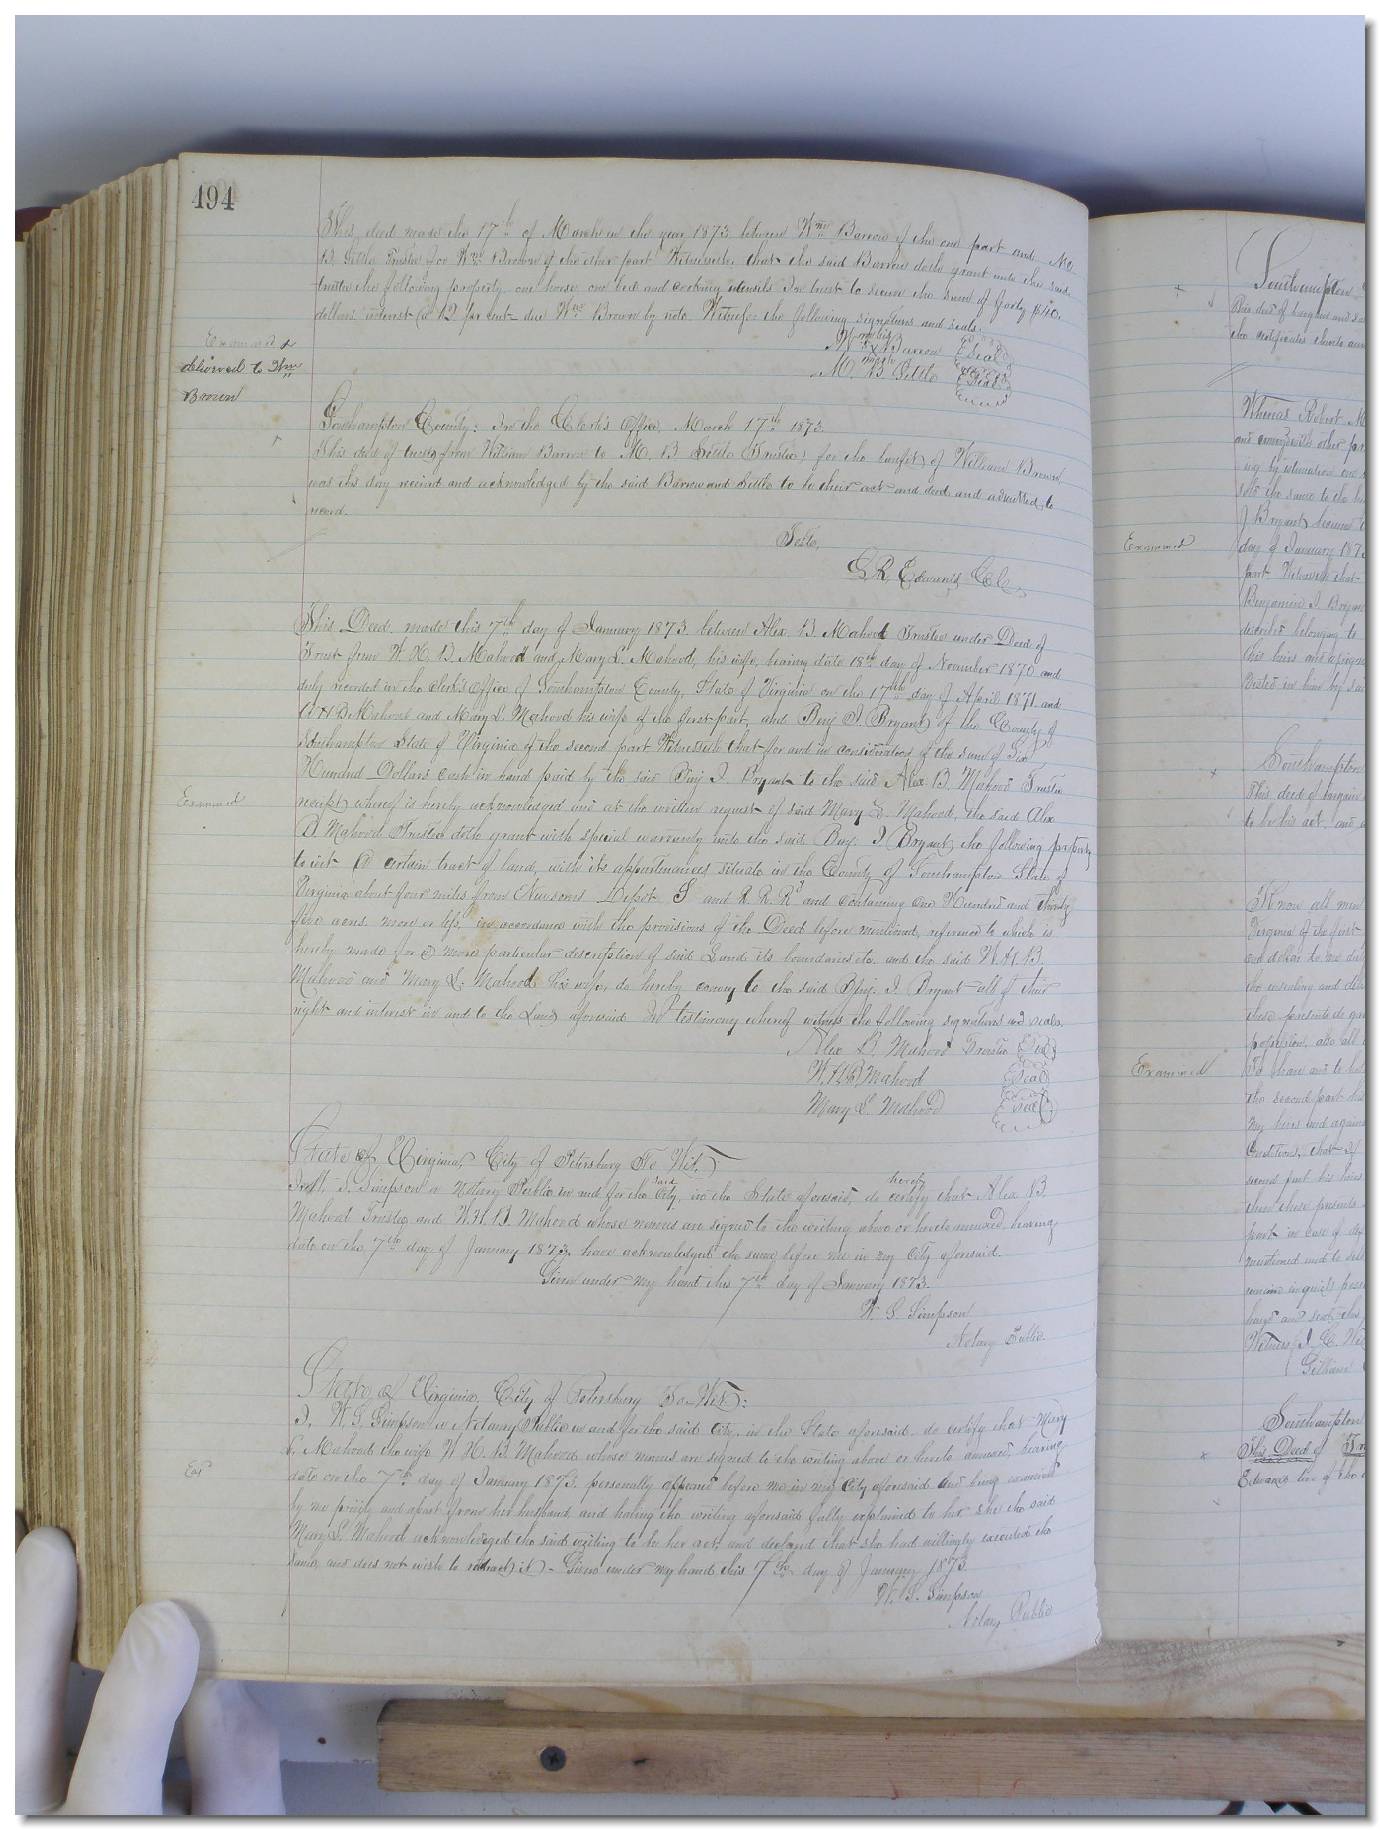 494
This deed made the 17th of March in the year 1873 between Wm Barrow of the one part and M.
B. Settle Trustee for Wm Brown of the other part Witnesseth that the said Barrow doth grant unto the said
trustee the following property one horse one bed and cooking utensils In trust to secure the sum of forty $40.
dollars interest @ 12 per cent due Wm Brown by note. Witness the following signatures and seals.
Wm his x mark Barrow Seal
M. B Settle Seal
Examined &
delivered to Wm
Brown
Southampton County: In the Clerk's Office, March 17th 1873.
This deed of trust from William Barrow to M. B Settle Trustee for the benefit of William Brown
was this day received and acknowledged by the said Barrow and Settle to be their act and deed and admitted to
record.
Teste,
L R Edwards C C
This Deed made this 7th day of January 1873 between Alex B. Mahood Trustee under Deed of
Trust from W. H. B Mahood and Mary L. Mahood, his wife, bearing date 18th day of November 1870 and
duly recorded in the clerk's office of Southampton County, State of Virginia on the 17th day of April 1871 and
W H B Mahood and Mary L Mahood his wife of the first part, and Benj I Bryant of the County of
Southampton State of Virginia of the second part Witnesseth that for and in consideration of the sum of Six
Hundred Dollars cash in hand paid by the said Benj I. Bryant to the said Alex B. Mahood Trustee
receipt whereof is hereby acknowledged and at the written request of said Mary L. Mahood, the said Alex
B. Mahood Trustee doth grant with special warranty unto the said Benj. I Bryant the following property
to wit A certain tract of land, with its appurtenances situate in the County of Southampton State of
Virginia about four miles from Newsoms Depot S and R. R. Rd and containing One Hundred and thirty
five acres more or less, in accordance with the provisions of the Deed before mentioned, reference to which is
hereby made for a more particular description of said Land its boundaries etc. and the said W. H. B.
Mahood and Mary L. Mahood his wife, do hereby convey to the said Benj. I Bryant all of their
right and interest in and to the Land aforesaid In testimony whereof witness the following signatures and seals.
Examined
Alex B. Mahood Trustee Seal
W. H B Mahood Seal
Mary L. Mahood Seal
State of Virginia, City of Petersburg To Wit,
I W. S. Simpson a Notary Public in and for the said City, in the State aforesaid, do hereby certify that Alex B.
Mahood Trustee and W. H. B. Mahood whose names are signed to the writing above or hereto annexed, bearing
date on the 7th day of January 1873, have acknowledged the same before me in my City aforesaid.
Given under my hand this 7th day of January 1873.
W. S. Simpson
Notary Public
State of Virginia, City of Petersburg To Wit:
I, W. S. Simpson a Notary Public in and for the said City, in the State aforesaid, do certify that Mary
L. Mahood the wife W. H. B Mahood whose names are signed to the writing above or hereto annexed, bearing
date on the 7th day of January 1873. personally appeared before me in my City aforesaid and being examined
by me privily and apart from her husband, and having the writing aforesaid fully explained to her she the said
Mary L. Mahood acknowledged the said writing to be her act, and declared that she had willingly executed the
same, and does not wish to retract it - Given under my hand this 7th day of January 1873.
Ex'd
W. S. Simpson
Notary Public
Southampton
This deed of bargain and sa
the certificates thereto ann
Whereas Robert M
sold the same to the
of Bryant
day of January 187
part. Witnesseth that
Benjamin I. Bryan
belonging to
his heirs and assigns
vested in him by said
Examined
Southampton
This deed of bargain
to be his act and
Know all men
Virginia of the first
the second part his
my heirs and against
second part his heirs
these presents
part in case of
Examined
Southampton
This Deed of Tr
Edwards